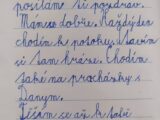 posílame ti pozdrav.
Máme se dobře. Každý den
chodím k potoku, stavím
si tam hráze. Chodím
také na procházky s
Danym.
Těším se až k tobě